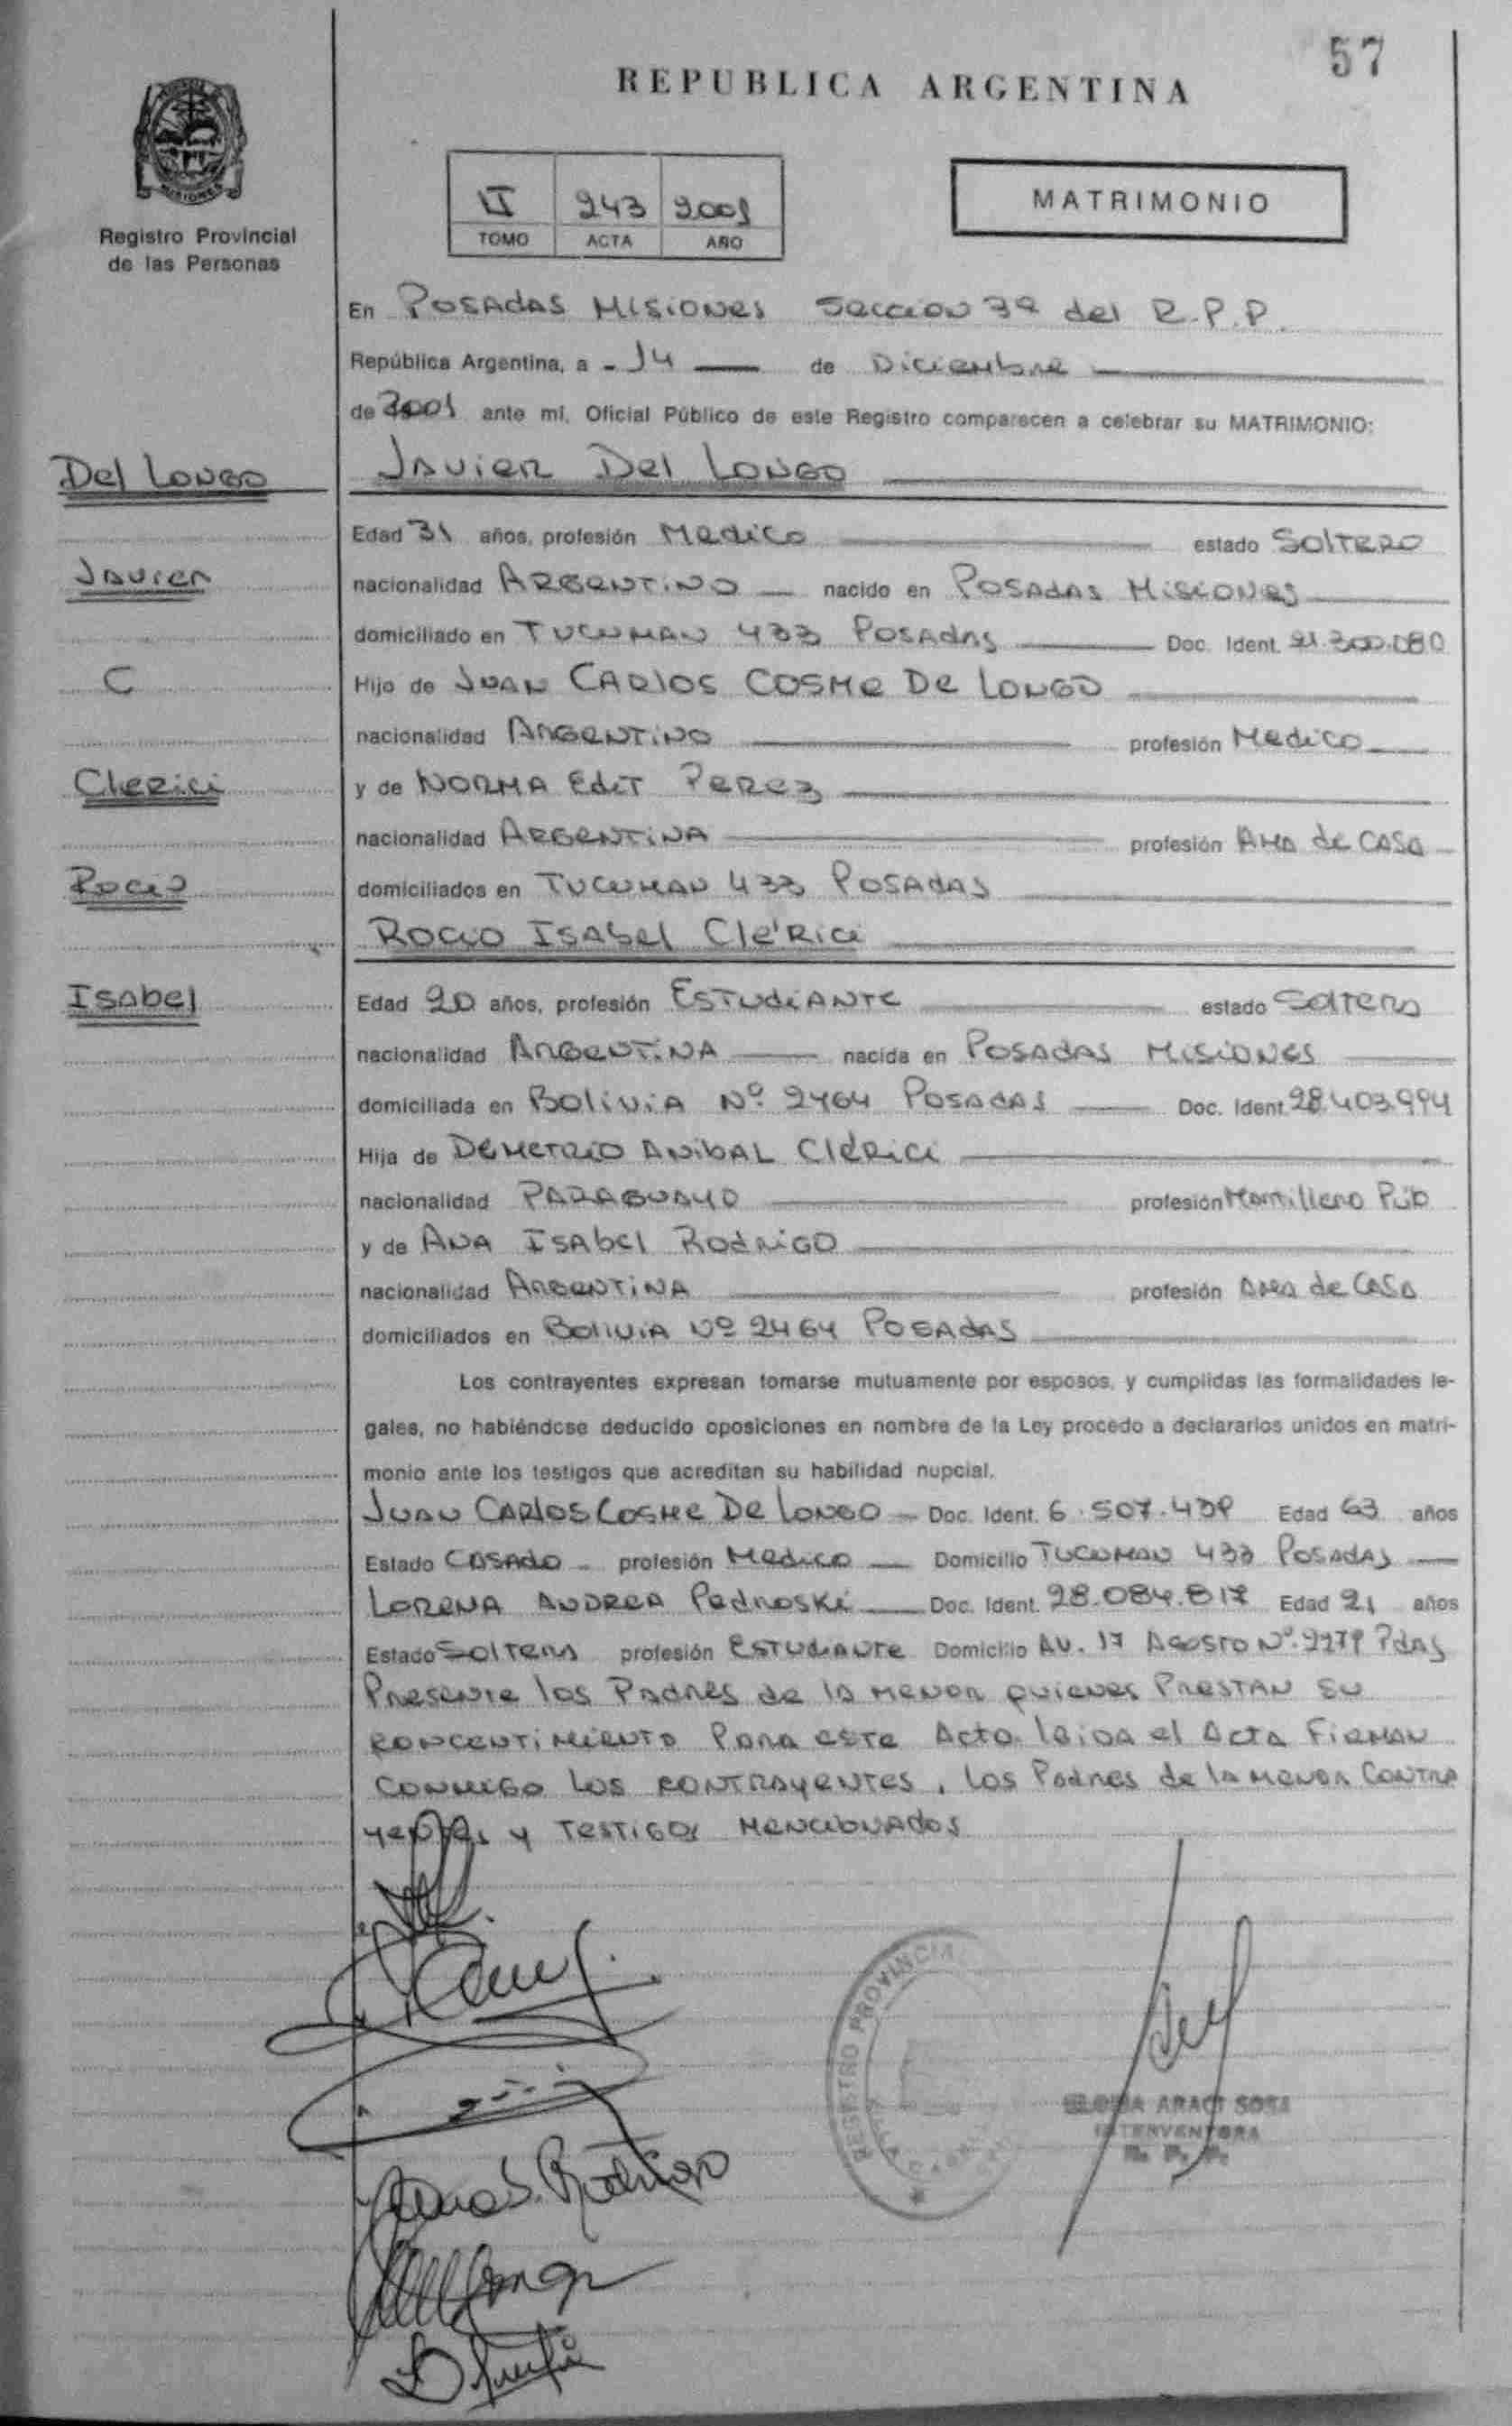 57
REPUBLICA ARGENTINA
MISIONES
Registro Provincial
de las Personas
II 243 2001
TOMO ACTA AÑO
MATRIMONIO
En POSADAS MISIONES Seccion 3ª del R.P.P.
República Argentina, a - 14 de Diciembre
de 2001 ante mí, Oficial Público de este Registro comparecen a celebrar su MATRIMONIO:
Del Longo
Javier Del Longo
Edad 31 años, profesión Medico estado Soltero
Javier
nacionalidad ARGENTINO nacido en POSADAS MISIONES
domiciliado en TUCUMAN 433 POSADAS Doc. Ident. 21.300.080
C
Hijo de JUAN CARLOS COSME De LONGO
nacionalidad ARGENTINO profesión Medico
Clerici
y de NORMA EdiT Perez
nacionalidad ARGENTINA profesión AMA de CASA
Rocio
domiciliados en TUCUMAN 433 POSADAS
ROCIO ISABel Clérici
Isabel
Edad 20 años, profesión ESTUDIANTE estado Soltera
nacionalidad ARGENTINA nacida en POSADAS MISIONES
domiciliada en Bolivia Nº 2464 POSADAS Doc. Ident. 28.403.994
Hija de DEMETRIO ANIBAL Clérici
nacionalidad PARAGUAYO profesión Martillero Púb
y de ANA ISAbel RODRIGO
nacionalidad ARGENTINA profesión AMA de CASA
domiciliados en Bolivia Nº 2464 POSADAS
Los contrayentes expresan tomarse mutuamente por esposos, y cumplidas las formalidades le-
gales, no habiéndose deducido oposiciones en nombre de la Ley procedo a declararlos unidos en matri-
monio ante los testigos que acreditan su habilidad nupcial.
JUAN CARLOS COSME De LONGO Doc. Ident. 6.507.439 Edad 63 años
Estado CASADO profesión Medico Domicilio TUCUMAN 433 POSADAS
LORENA ANDREA Pedroski Doc. Ident. 28.084.817 Edad 21 años
Estado Soltera profesión ESTUDIANTE Domicilio AV. 17 AGOSTO Nº Pdas
Presente los Padres de la menor quienes PRESTAN su
concentimiento Para este Acto. leida el Acta FIRMAN
conmigo los contrayentes, los Padres de la menor CONTRA
yentes y TESTIGOS MENCIONADOS
REGISTRO PROVINCIAL
Ana I. Rodrigo
ARACI SOSA
INTERVENTORA
R. P. P.